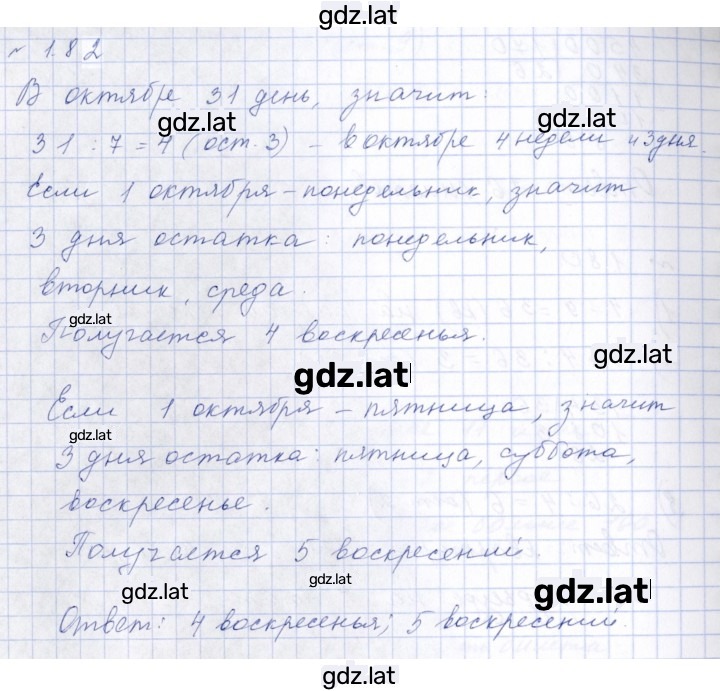 gdz.lat
№ 1.82
В октябре 31 день, значит:
gdz.lat gdz.lat
31 : 7 = 4 (ост. 3) – в октябре 4 недели и 3 дня.
Если 1 октября – понедельник, значит
3 дня остатка: понедельник,
вторник, среда.
gdz.lat
Получается 4 воскресенья.
gdz.lat
gdz.lat
Если 1 октября – пятница, значит
gdz.lat
3 дня остатка: пятница, суббота,
воскресенье.
Получается 5 воскресений.
gdz.lat gdz.lat gdz.lat
Ответ: 4 воскресенья; 5 воскресений.
gdz.lat